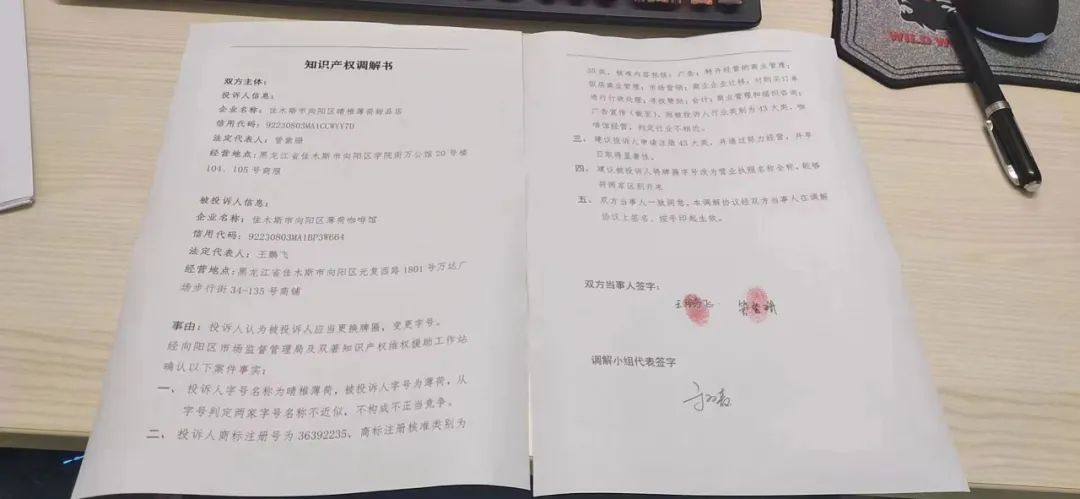 知识产权调解书
双方主体：
投诉人信息：
企业名称：佳木斯市向阳区晴稚薄荷甜品店
信用代码：92230803MA1CCWYY7D
法定代表人：管紫珊
经营地点：黑龙江省佳木斯市向阳区学院街万公馆20号楼
104、105号商服
被投诉人信息：
企业名称：佳木斯市向阳区薄荷咖啡馆
信用代码：92230803MA1BP3W664
法定代表人：王鹏飞
经营地点：黑龙江省佳木斯市向阳区光复西路1801号万达广
场步行街34-135号商铺
事由：投诉人认为被投诉人应当更换牌匾，变更字号。
经向阳区市场监督管理局及双薯知识产权维权援助工作站
确认以下案件事实：
一、投诉人字号名称为晴稚薄荷，被投诉人字号为薄荷，从
字号判定两家字号名称不近似，不构成不正当竞争。
二、投诉人商标注册号为36392235、商标注册核准类别为
35类，核准内容包括：广告；特许经营的商业管理；
饭店商业管理；市场营销；商业企业迁移；对购买订单
进行行政处理；寻找赞助；会计；商业管理和组织咨询；
广告宣传（截至），而被投诉人行业类别为43大类，咖
啡馆经营，判定行业不相近。
三、建议投诉人申请注册43大类，并通过努力经营，并早
日取得显著性。
四、建议被投诉人将牌匾字号改为营业执照名称全称，能够
将两家区别开来
五、双方当事人一致同意，本调解协议经双方当事人在调解
协议上签名、按手印起生效。
双方当事人签字：
王鹏飞
调解小组代表签字
WILD W